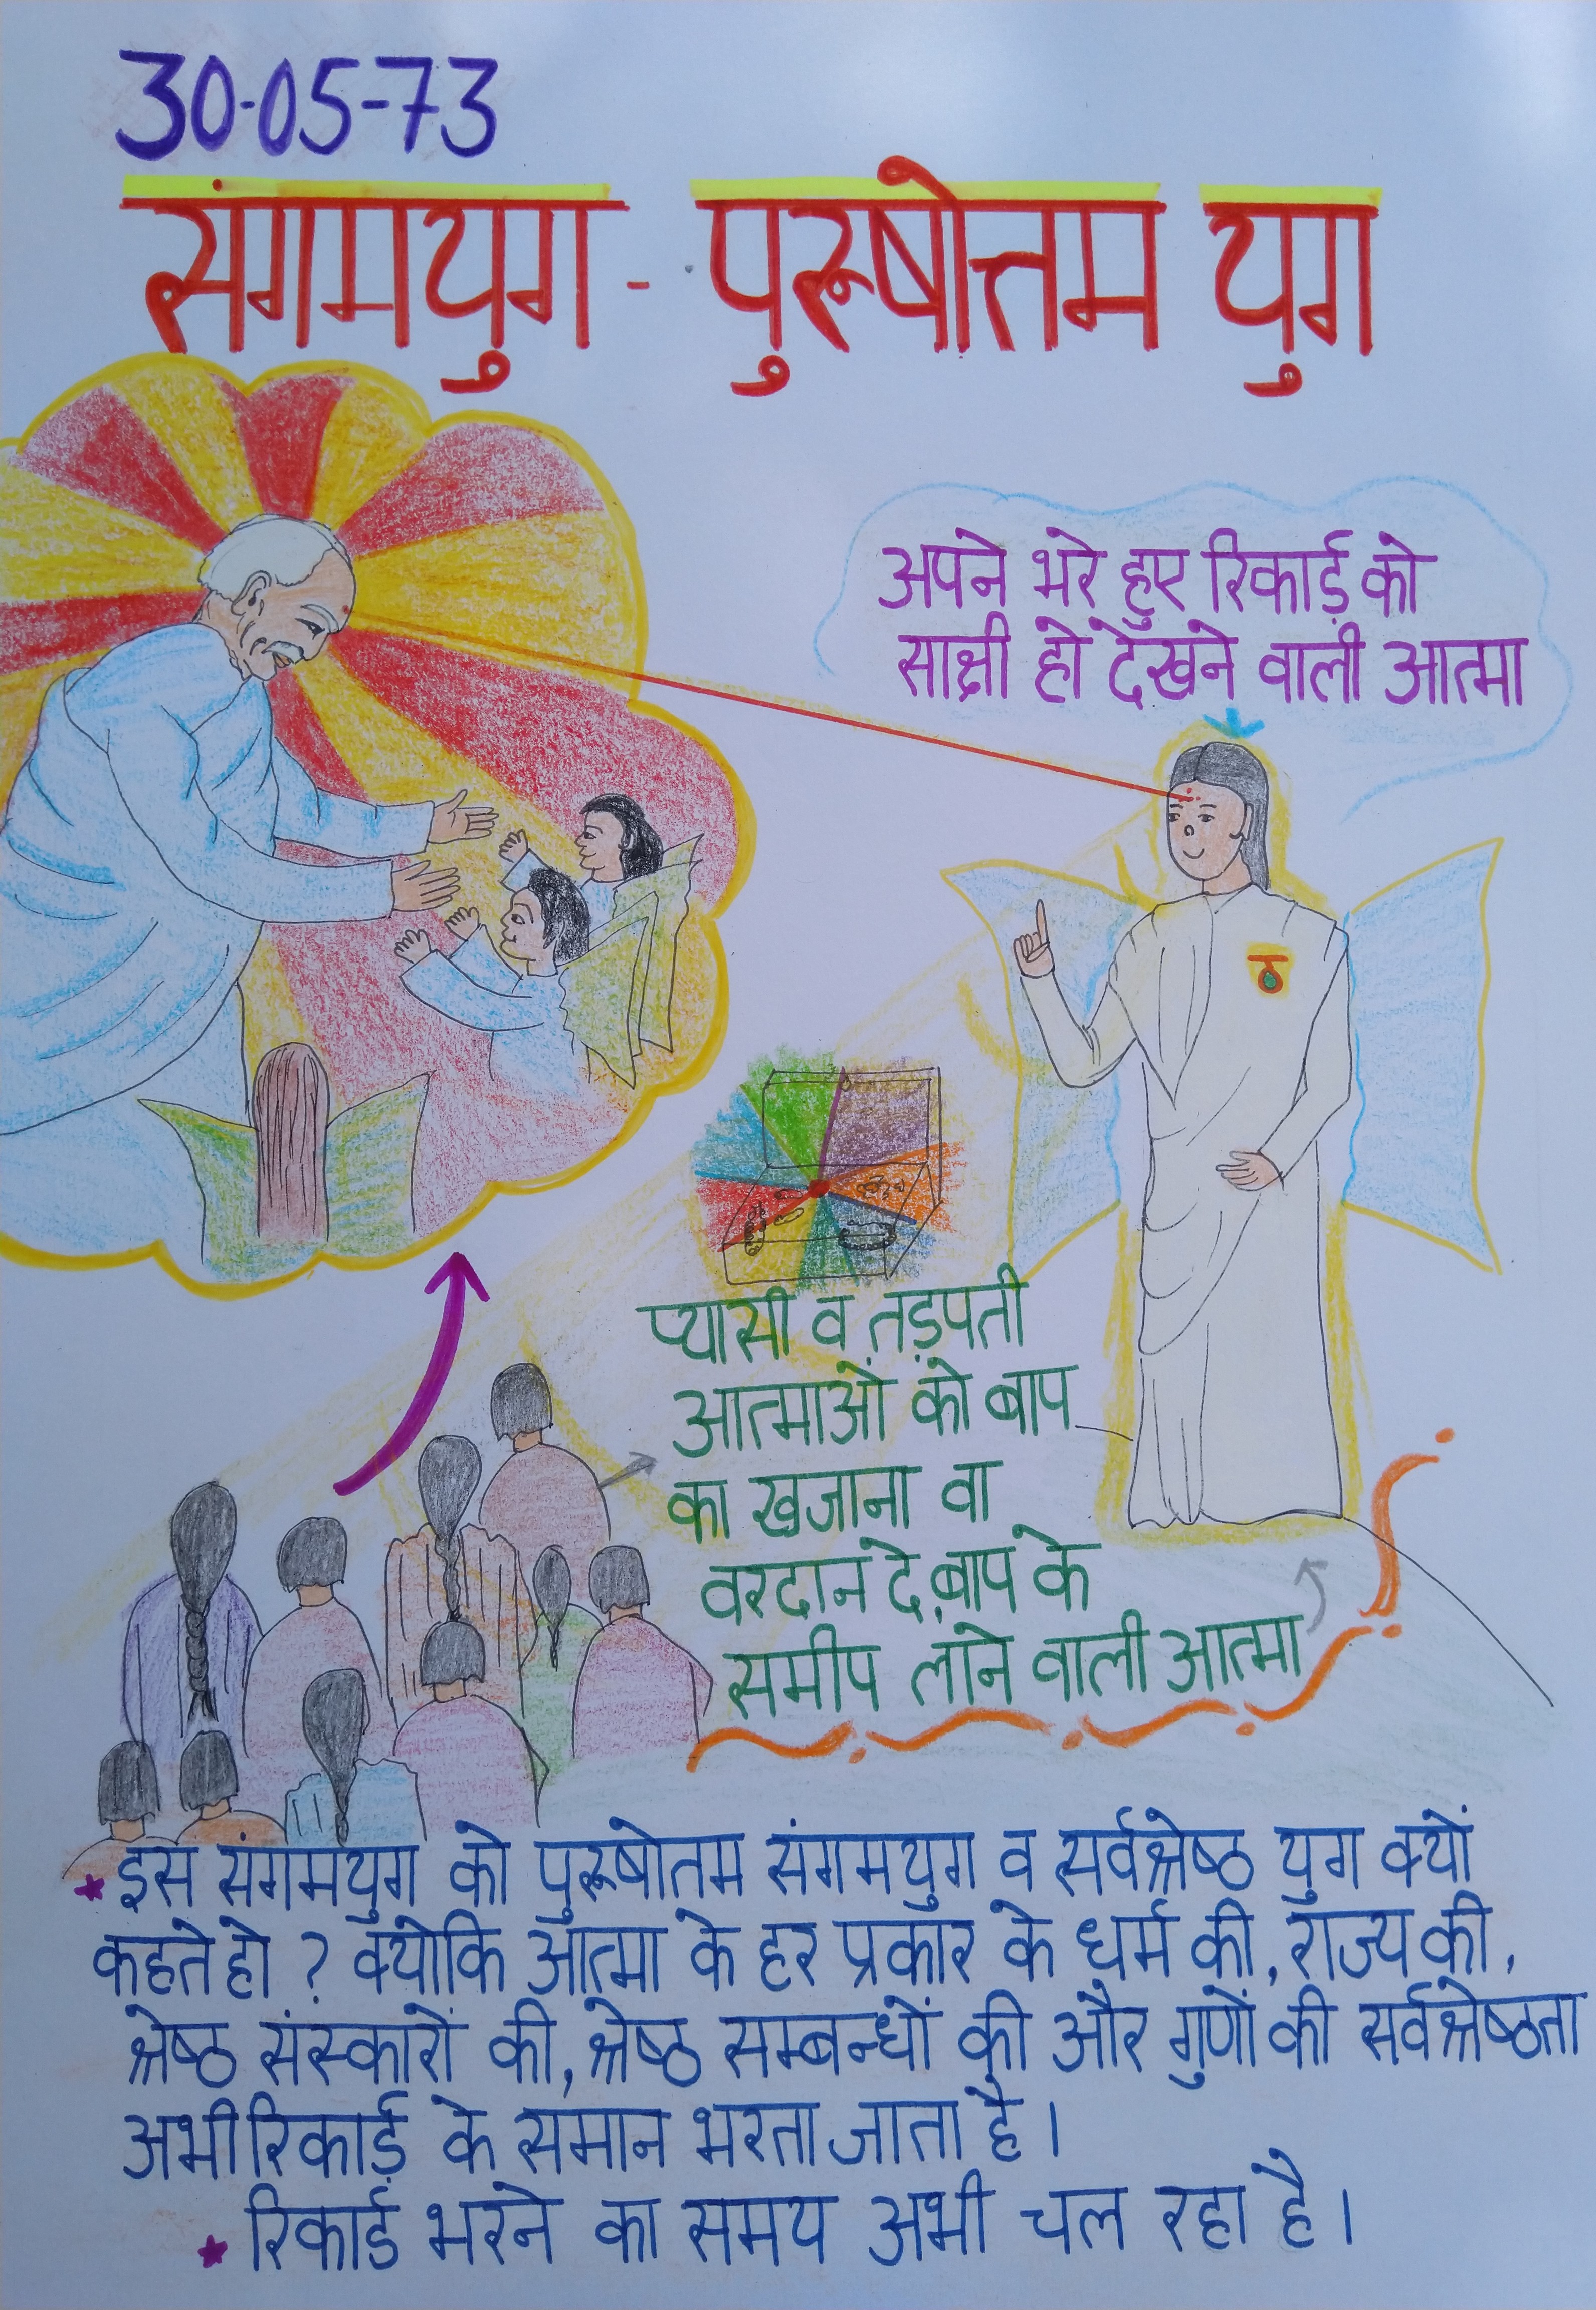 30-05-73
संगमयुग - पुरूषोत्तम युग
अपने भरे हुए रिकार्ड़ को
साक्षी हो देखने वाली आत्मा
प्यासी व तड़पती
आत्माओं को बाप
का खजाना वा
वरदान दे, बाप के
समीप लाने वाली आत्मा
* इस संगमयुग को पुरूषोतम संगमयुग व सर्वश्रेष्ठ युग क्यों
कहते हो ? क्योकि आत्मा के हर प्रकार के धर्म की, राज्य की,
श्रेष्ठ संस्कारों की, श्रेष्ठ सम्बन्धों की और गुणों की सर्वश्रेष्ठता
अभी रिकार्ड़ के समान भरता जाता है।
* रिकार्ड भरने का समय अभी चल रहा है।